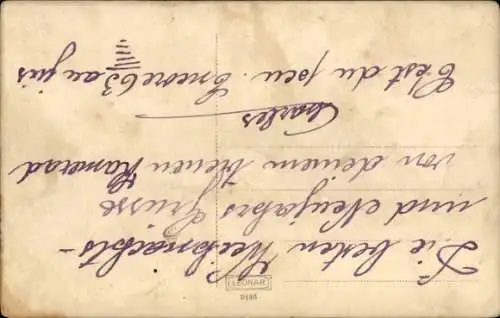 Die besten Weihnachts-
und Neujahrs Grüsse
von deinem treuen Kamerad
Charles
C'est du peu. Encore 63 au jus
LEONAR